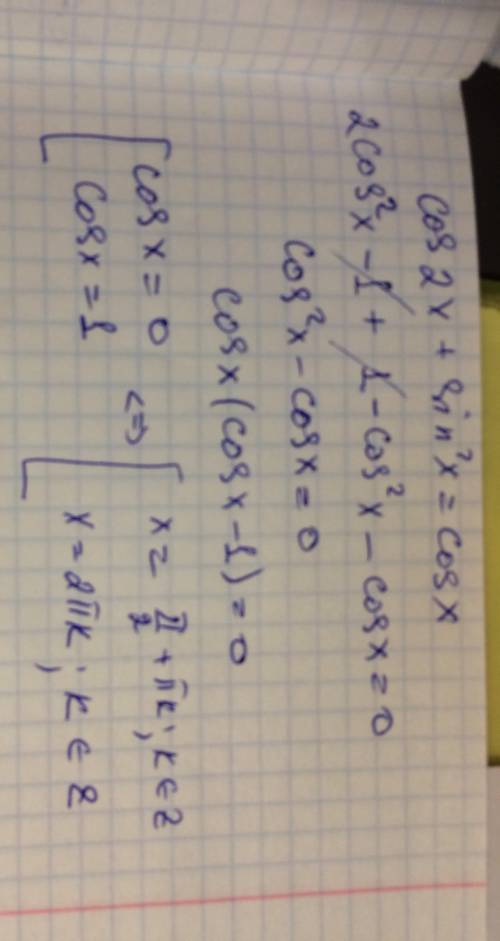 cos 2x + sin²x = cos x
2cos²x - 1 + 1 - cos²x - cos x = 0
cos²x - cos x = 0
cos x (cos x - 1) = 0
[ cos x = 0 <=> [ x = π/2 + πk; k ∈ Z
cos x = 1 x = 2πk; k ∈ Z